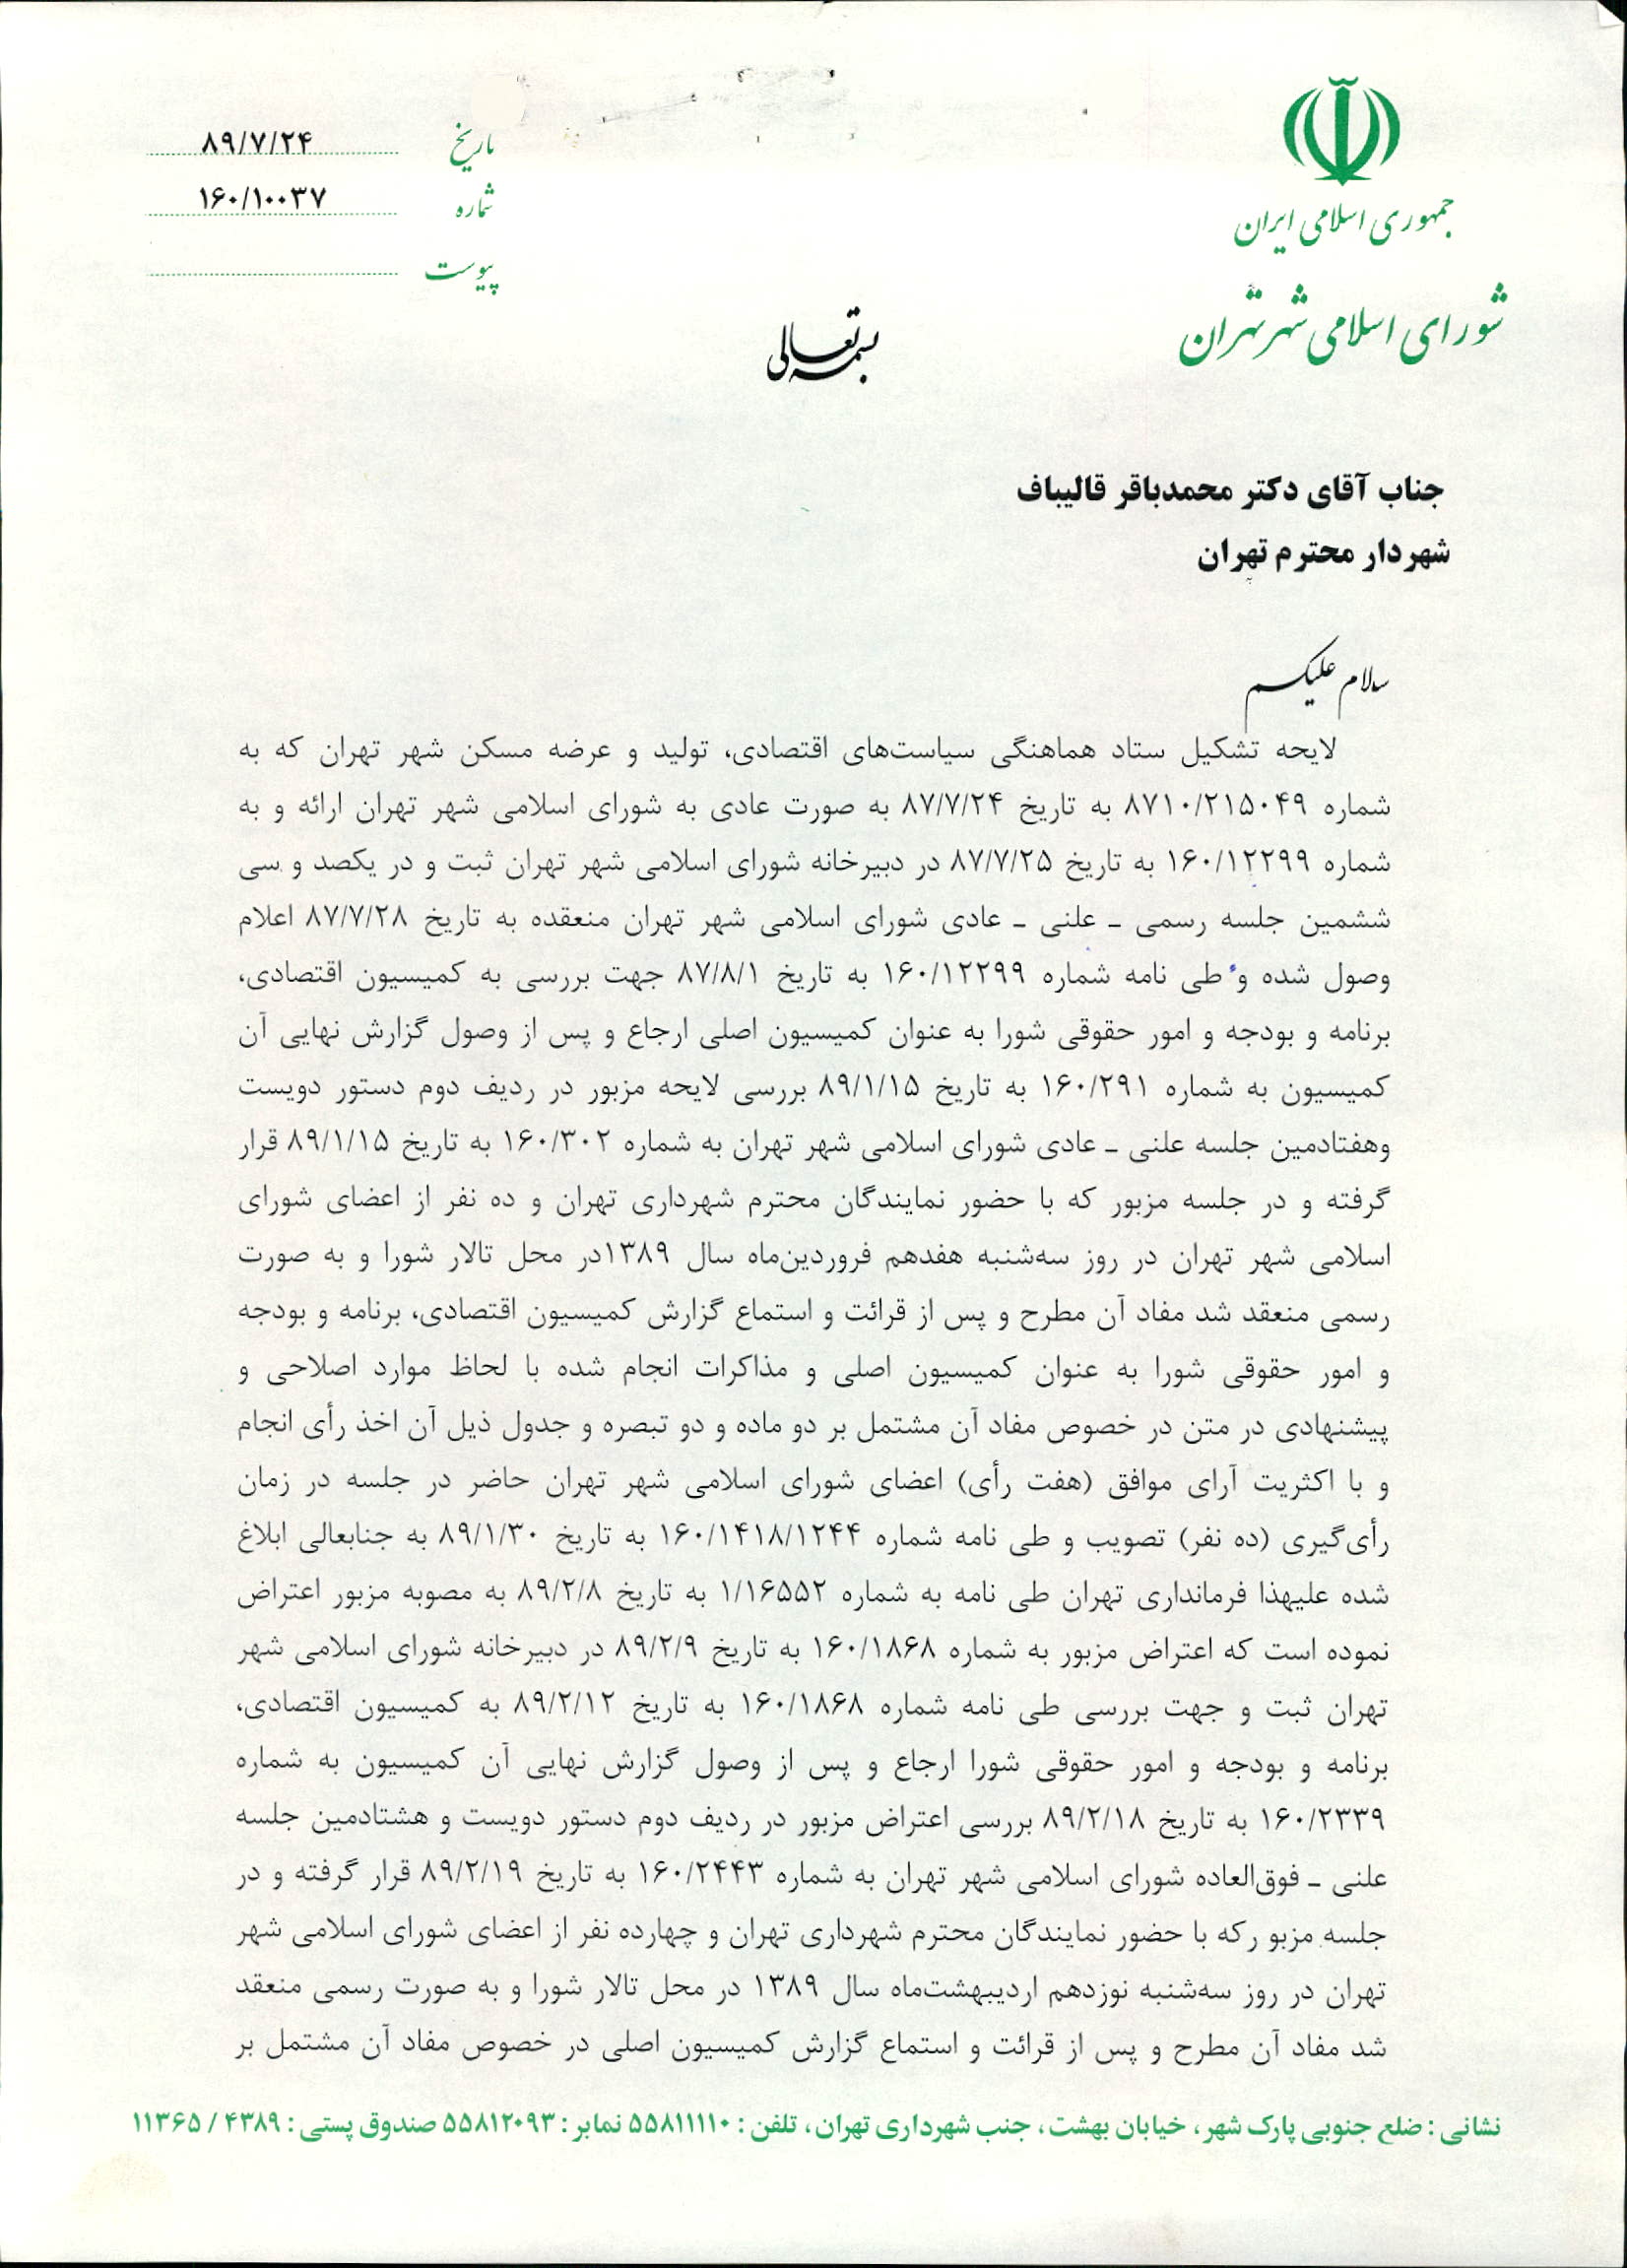 جمهوری اسلامی ایران
شورای اسلامی شهر تهران
تاریخ ۸۹/۷/۲۴
شماره ۱۶۰/۱۰۰۳۷
پیوست
بسمه تعالی
جناب آقای دکتر محمدباقر قالیباف
شهردار محترم تهران
سلام علیکم
لایحه تشکیل ستاد هماهنگی سیاست‌های اقتصادی، تولید و عرضه مسکن شهر تهران که به
شماره ۸۷۱۰/۲۱۵۰۴۹ به تاریخ ۸۷/۷/۲۴ به صورت عادی به شورای اسلامی شهر تهران ارائه و به
شماره ۱۶۰/۱۲۲۹۹ به تاریخ ۸۷/۷/۲۵ در دبیرخانه شورای اسلامی شهر تهران ثبت و در یکصد و سی
ششمین جلسه رسمی ـ علنی ـ عادی شورای اسلامی شهر تهران منعقده به تاریخ ۸۷/۷/۲۸ اعلام
وصول شده و طی نامه شماره ۱۶۰/۱۲۲۹۹ به تاریخ ۸۷/۸/۱ جهت بررسی به کمیسیون اقتصادی،
برنامه و بودجه و امور حقوقی شورا به عنوان کمیسیون اصلی ارجاع و پس از وصول گزارش نهایی آن
کمیسیون به شماره ۱۶۰/۲۹۱ به تاریخ ۸۹/۱/۱۵ بررسی لایحه مزبور در ردیف دوم دستور دویست
وهفتادمین جلسه علنی ـ عادی شورای اسلامی شهر تهران به شماره ۱۶۰/۳۰۲ به تاریخ ۸۹/۱/۱۵ قرار
گرفته و در جلسه مزبور که با حضور نمایندگان محترم شهرداری تهران و ده نفر از اعضای شورای
اسلامی شهر تهران در روز سه‌شنبه هفدهم فروردین‌ماه سال ۱۳۸۹در محل تالار شورا و به صورت
رسمی منعقد شد مفاد آن مطرح و پس از قرائت و استماع گزارش کمیسیون اقتصادی، برنامه و بودجه
و امور حقوقی شورا به عنوان کمیسیون اصلی و مذاکرات انجام شده با لحاظ موارد اصلاحی و
پیشنهادی در متن در خصوص مفاد آن مشتمل بر دو ماده و دو تبصره و جدول ذیل آن اخذ رأی انجام
و با اکثریت آرای موافق (هفت رأی) اعضای شورای اسلامی شهر تهران حاضر در جلسه در زمان
رأی‌گیری (ده نفر) تصویب و طی نامه شماره ۱۶۰/۱۴۱۸/۱۲۴۴ به تاریخ ۸۹/۱/۳۰ به جنابعالی ابلاغ
شده علیهذا فرمانداری تهران طی نامه به شماره ۱/۱۶۵۵۲ به تاریخ ۸۹/۲/۸ به مصوبه مزبور اعتراض
نموده است که اعتراض مزبور به شماره ۱۶۰/۱۸۶۸ به تاریخ ۸۹/۲/۹ در دبیرخانه شورای اسلامی شهر
تهران ثبت و جهت بررسی طی نامه شماره ۱۶۰/۱۸۶۸ به تاریخ ۸۹/۲/۱۲ به کمیسیون اقتصادی،
برنامه و بودجه و امور حقوقی شورا ارجاع و پس از وصول گزارش نهایی آن کمیسیون به شماره
۱۶۰/۲۳۳۹ به تاریخ ۸۹/۲/۱۸ بررسی اعتراض مزبور در ردیف دوم دستور دویست و هشتادمین جلسه
علنی ـ فوق‌العاده شورای اسلامی شهر تهران به شماره ۱۶۰/۲۴۴۳ به تاریخ ۸۹/۲/۱۹ قرار گرفته و در
جلسه مزبو رکه با حضور نمایندگان محترم شهرداری تهران و چهارده نفر از اعضای شورای اسلامی شهر
تهران در روز سه‌شنبه نوزدهم اردیبهشت‌ماه سال ۱۳۸۹ در محل تالار شورا و به صورت رسمی منعقد
شد مفاد آن مطرح و پس از قرائت و استماع گزارش کمیسیون اصلی در خصوص مفاد آن مشتمل بر
نشانی : ضلع جنوبی پارک شهر، خیابان بهشت، جنب شهرداری تهران، تلفن : ۵۵۸۱۱۱۱۰ نمابر : ۵۵۸۱۲۰۹۳ صندوق پستی : ۴۳۸۹ / ۱۱۳۶۵